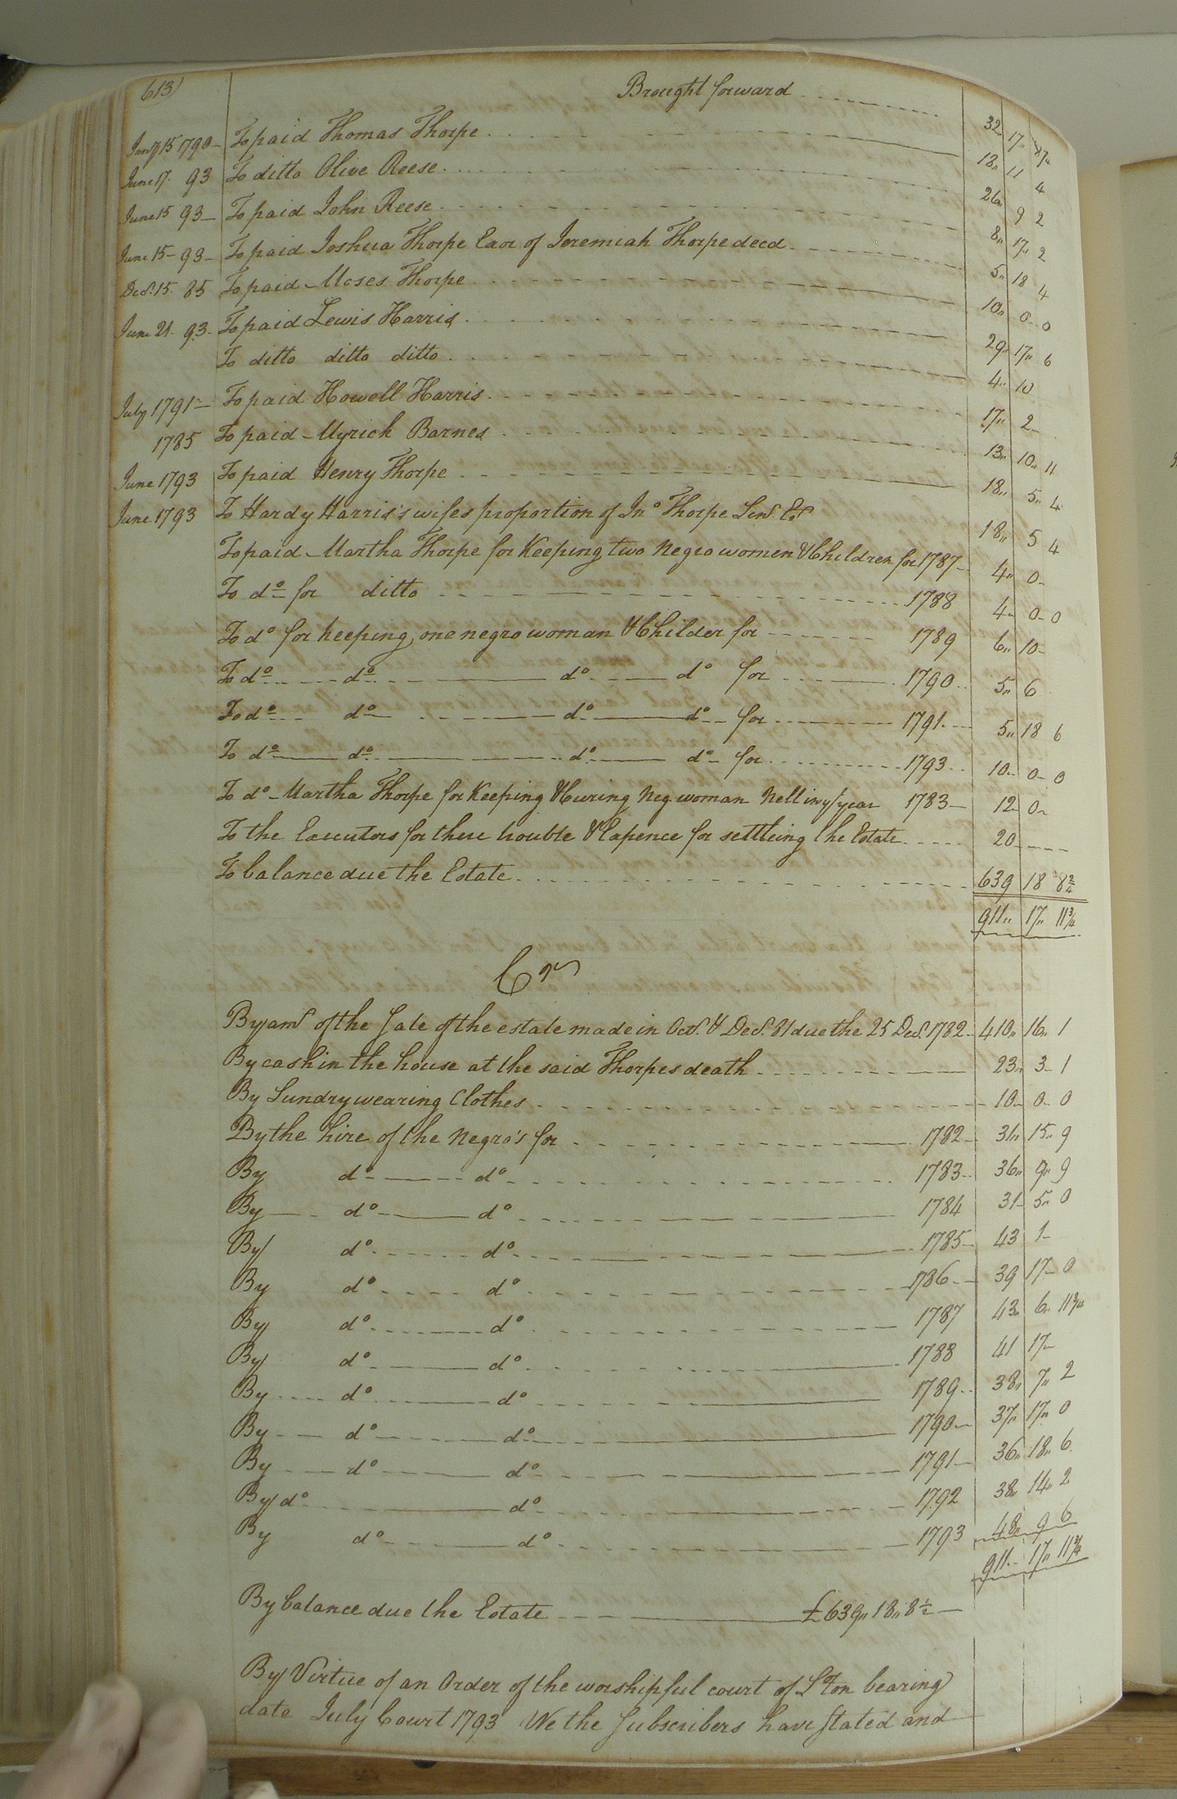 613) Brought forward 32 17 
Jany 15 1790 To paid Thomas Thorpe 18 11 4
June 17. 93 To ditto Olive Reese 26 9 2
June 15 93 To paid John Reese 8 17 2
June 15 93 To paid Joshua Thorpe Exor of Jeremiah Thorpe decd 5 18 4
Decr. 15. 85 To paid Moses Thorpe 10 0 0
June 21 93 To paid Lewis Harris 29 17 6
To ditto ditto ditto 4 10
July 1791 To paid Howell Harris 17 2
1785 To paid Myrick Barnes 13 10 11
June 1793 To paid Henry Thorpe 18 5 4
June 1793 To Hardy Harris's wifes proportion of Jno Thorpe Senr. Est 18 5 4
To paid Martha Thorpe for Keeping two Negro women & Children for 1787 4 0
To do for ditto 1788 4 0 0
To do for keeping one negro woman & Childer for 1789 6 10
To do do do do for 1790 5 6
To do do do do for 1791 5 18 6
To do do do do for 1793 10 0 0
To do Martha Thorpe for Keeping & Curing Neg woman Nell in year 1783 12 0
To the Executors for there trouble & Expence for settleing the Estate 20
To balance due the Estate 639 18 8¾
911 17 11¾
Cr
By amt of the Sale of the estate made in Octr. & Decr. 81 due the 25 Decr. 1782 410 16 1
By cash in the house at the said Thorpes death 23 3 1
By Sundry wearing Clothes 10 0 0
By the hire of the Negro's for 1782 31 15 9
By do do 1783 36 9 9
By do do 1784 31 5 0
By do do 1785 43 1
By do do 1786 39 17 0
By do do 1787 43 6 11¾
By do do 1788 41 17
By do do 1789 38 7 2
By do do 1790 37 17 0
By do do 1791 36 18 6
By do do 1792 38 14 2
By do do 1793 48 9 6
911 17 11¾
By balance due the Estate £639 18 8½
By Virtue of an Order of the worshipful court of S'ton bearing
date July Court 1793 We the Subscribers have stated and